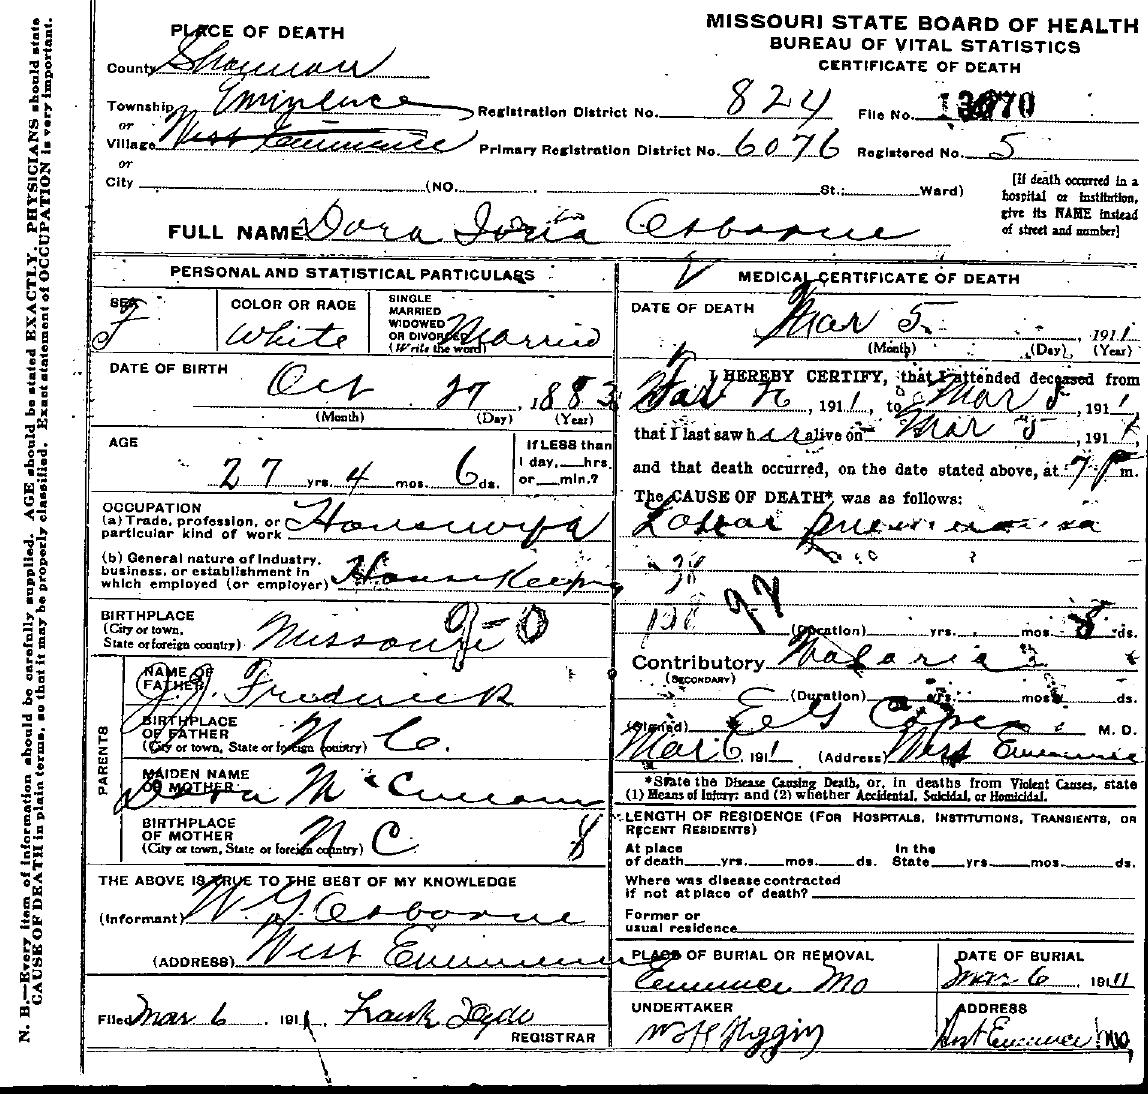 MISSOURI STATE BOARD OF HEALTH
BUREAU OF VITAL STATISTICS
CERTIFICATE OF DEATH
PLACE OF DEATH
County Shannon
Township Eminence Registration District No. 824 File No.
or
Village West Eminence Primary Registration District No. 6076 Registered No. 5
or
City (NO. St.; Ward)
[If death occurred in a
hospital or institution,
give its NAME instead
of street and number]
FULL NAME Dora Osborne
PERSONAL AND STATISTICAL PARTICULARS
SEX
F
COLOR OR RACE
White
SINGLE
MARRIED
WIDOWED
OR DIVORCED
(Write the word)
Married
DATE OF BIRTH
Oct 27, 1883
(Month) (Day) (Year)
AGE
27 yrs. 4 mos. 6 ds.
If LESS than
1 day, hrs.
or min.?
OCCUPATION
(a) Trade, profession, or
particular kind of work Housewife
(b) General nature of Industry,
business, or establishment in
which employed (or employer) House Keeping
BIRTHPLACE
(City or town,
State or foreign country) Missouri
9-0
PARENTS
NAME OF
FATHER J. J. Frederick
BIRTHPLACE
OF FATHER
(City or town, State or foreign country) N C.
MAIDEN NAME
OF MOTHER
BIRTHPLACE
OF MOTHER
(City or town, State or foreign country) N C 8
THE ABOVE IS TRUE TO THE BEST OF MY KNOWLEDGE
(Informant) W. G. Osborne
(ADDRESS) West Eminence
Filed Mar 6, 1911 Frank
REGISTRAR
MEDICAL CERTIFICATE OF DEATH
DATE OF DEATH
Mar 5 1911
(Month) (Day) (Year)
I HEREBY CERTIFY, that I attended deceased from
, 1911, to Mar 5, 1911
that I last saw her alive on Mar 5, 191
and that death occurred, on the date stated above, at 7 P m.
The CAUSE OF DEATH* was as follows:
Lobar pneumonia
98
(Duration) yrs. mos. 8 ds.
Contributory Malaria
(SECONDARY)
(Duration) yrs. mos. ds.
(Signed) E G M. D.
Mar 6 1911 (Address) West Eminence
*State the Disease Causing Death, or, in deaths from Violent Causes, state
(1) Means of Injury; and (2) whether Accidental, Suicidal, or Homicidal.
LENGTH OF RESIDENCE (FOR HOSPITALS, INSTITUTIONS, TRANSIENTS, OR
RECENT RESIDENTS)
At place In the
of death yrs. mos. ds. State yrs. mos. ds.
Where was disease contracted
if not at place of death?
Former or
usual residence
PLACE OF BURIAL OR REMOVAL
Eminence Mo
DATE OF BURIAL
Mar 6 1911
UNDERTAKER
ADDRESS
West Eminence Mo
N. B.—Every item of information should be carefully supplied. AGE should be stated EXACTLY. PHYSICIANS should state
CAUSE OF DEATH in plain terms, so that it may be properly classified. Exact statement of OCCUPATION is very important.